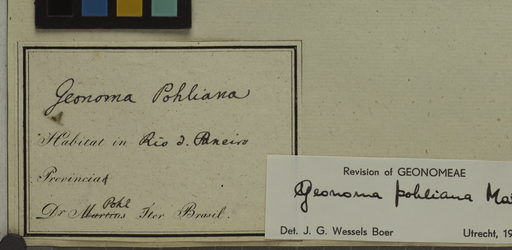 Geonoma Pohliana
Habitat in Rio d. Janeiro
Provincia
Pohl
Dr Martius Iter Brasil.
Revision of GEONOMEAE
Geonoma pohliana Ma
Det. J. G. Wessels Boer Utrecht, 19